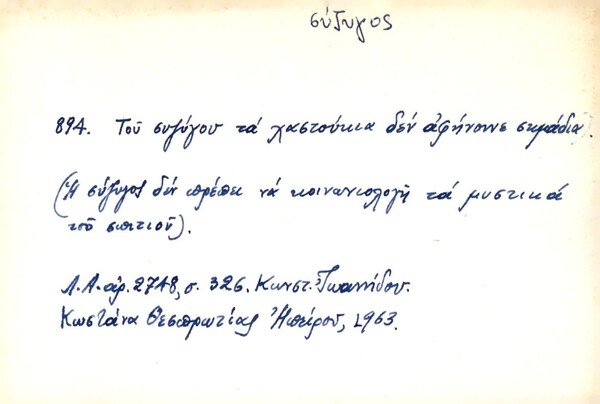 σύζυγος
894. Τοῦ συζύγου τά χαστούκια δέν ἀφήνουνε σημάδια.
(Ἡ σύζυγος δέν πρέπει νά κοινωνιολογῇ τά μυστικά
τοῦ σπιτιοῦ).
Λ.Α. ἀρ. 2748, σ. 326. Κωνστ. Ἰωαννίδου.
Κωστάνα Θεσπρωτίας Ἠπείρου, 1963.